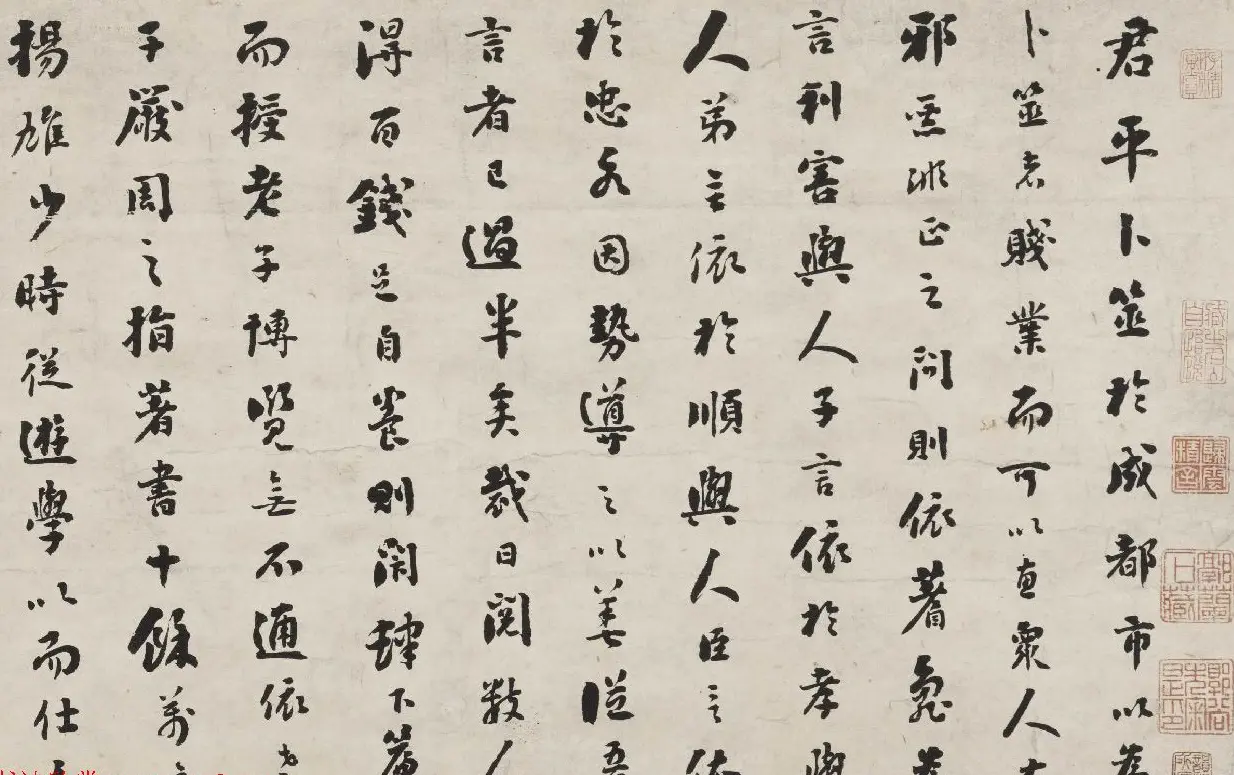 君平卜筮於成都市以為
卜筮者賤業而可以惠眾人有
邪惡非正之問則依蓍龜為
言利害與人子言依於孝與
人弟言依於順與人臣言依
於忠各因勢導之以善從吾
言者已過半矣裁日閱數人
得百錢足自養則閉肆下簾
而授老子博覽無不通依老
子嚴周之指著書十餘萬言
楊雄少時從遊學以而仕